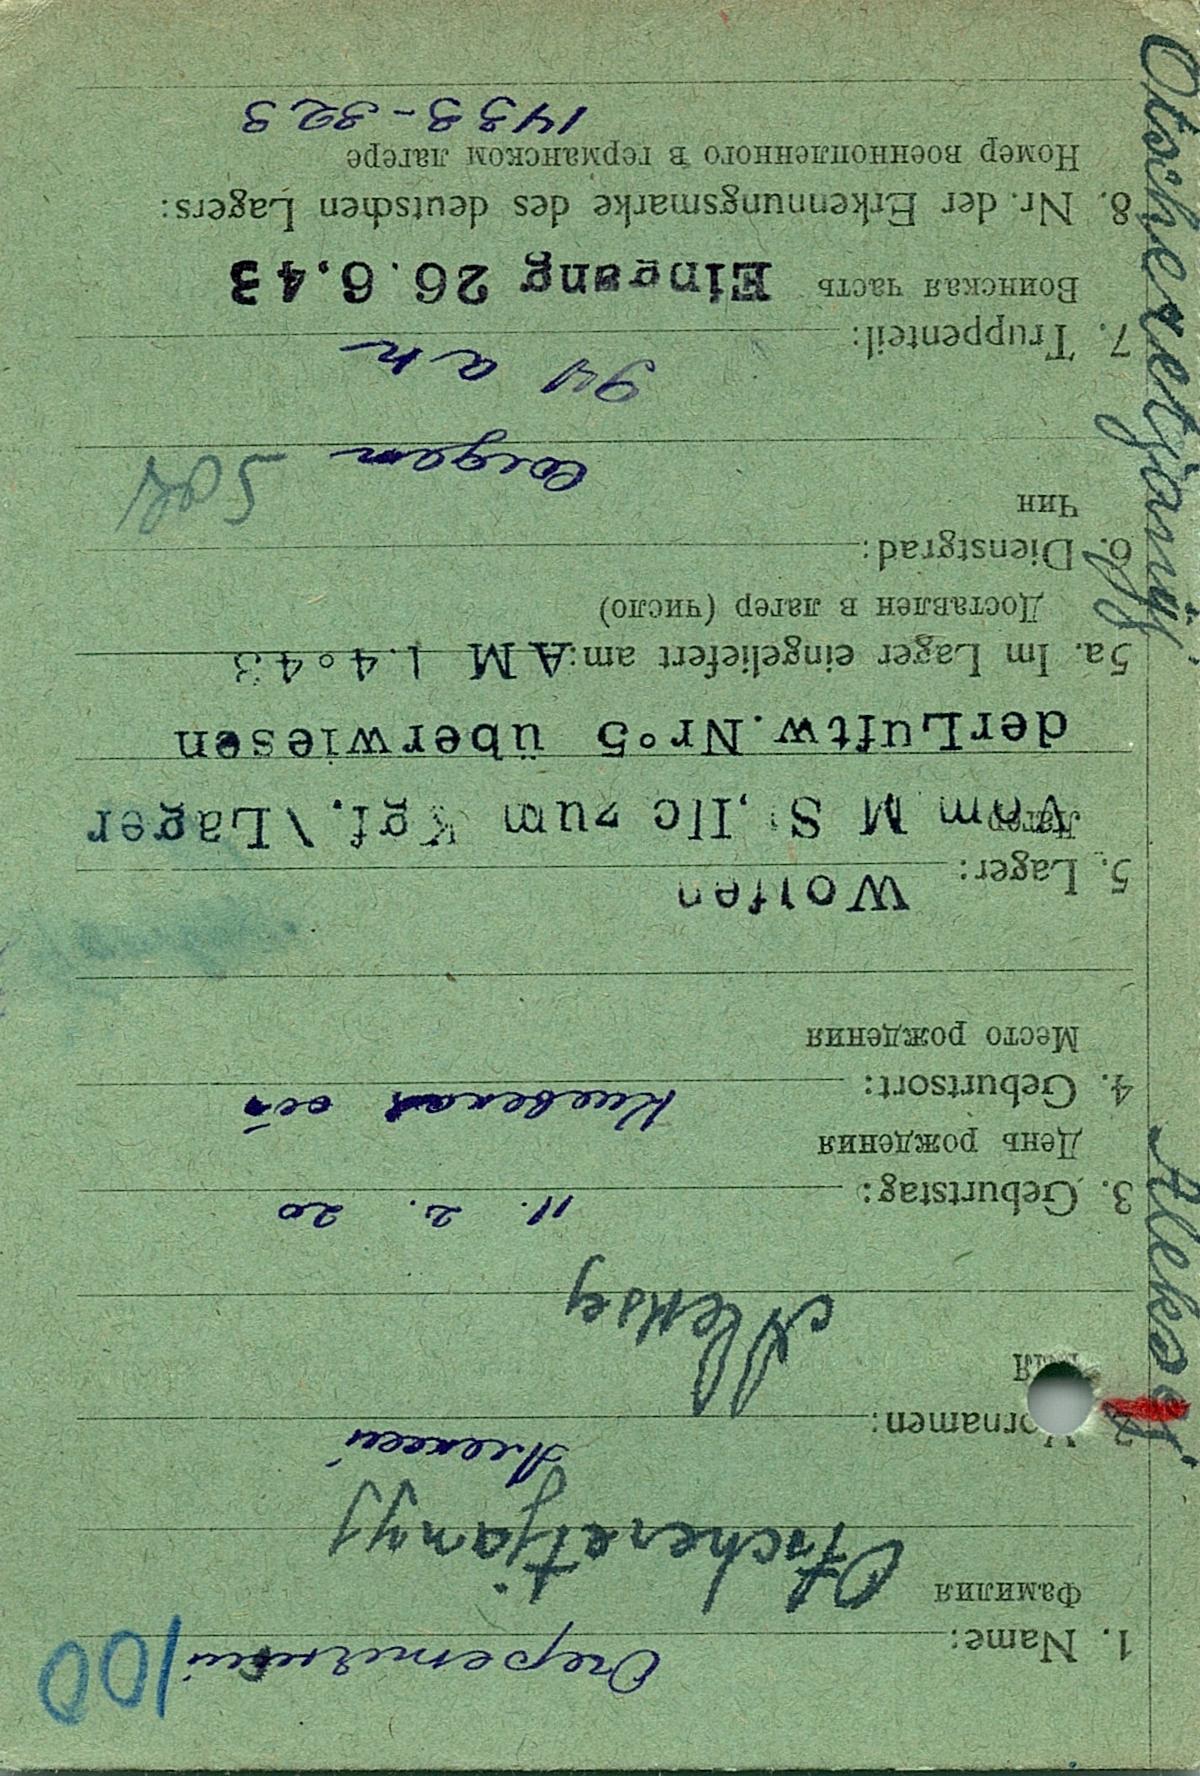 100
Очеретяный
1. Name:
Фамилия
Otscheretjanyj
Алексей
2. Vornamen:
Имя
Aleksej
11. 2. 20
3. Geburtstag:
День рождения
Киевская обл
4. Geburtsort:
Место рождения
Wolfen
5. Lager:
Лагерь
Vom M St, IIc zum Kgf. \ Lager
der Luftw. Nr. 5 überwiesen
5a. Im Lager eingeliefert am: AM 1.4.43
Доставлен в лагерь (число)
6. Dienstgrad:
Чин
Солдат
Sol
94
7. Truppenteil:
Воинская часть Eingang 26.6.43
8. Nr. der Erkennungsmarke des deutschen Lagers:
Номер военнопленного в германском лагере
1433-323
Otscheretjanyj Aleksej